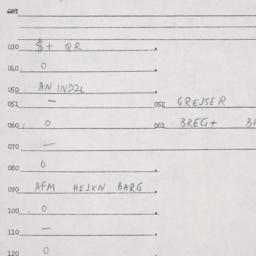 030 $+ QR
040 0
050 AN INDZL
051 — 052 GREJSER
060 0 061 BREG+
070 —
080 0
090 AFM HEJXN BARG
100 0
110 —
120 0